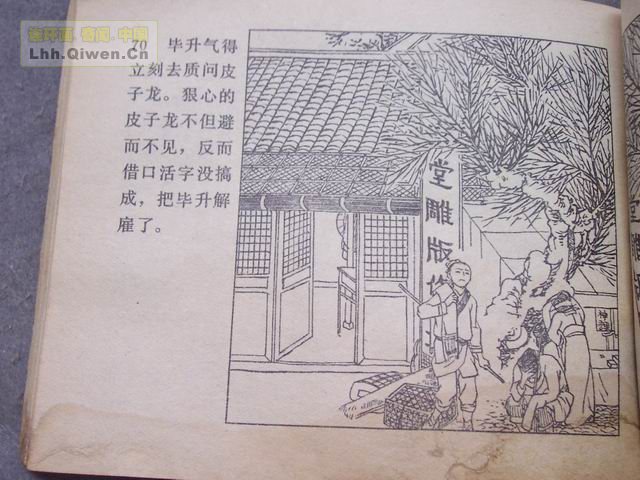 连环画·奇闻·中国
Lhh.Qiwen.Cn
70 毕升气得
立刻去质问皮
子龙。狠心的
皮子龙不但避
而不见，反而
借口活字没搞
成，把毕升解
雇了。
堂雕版作